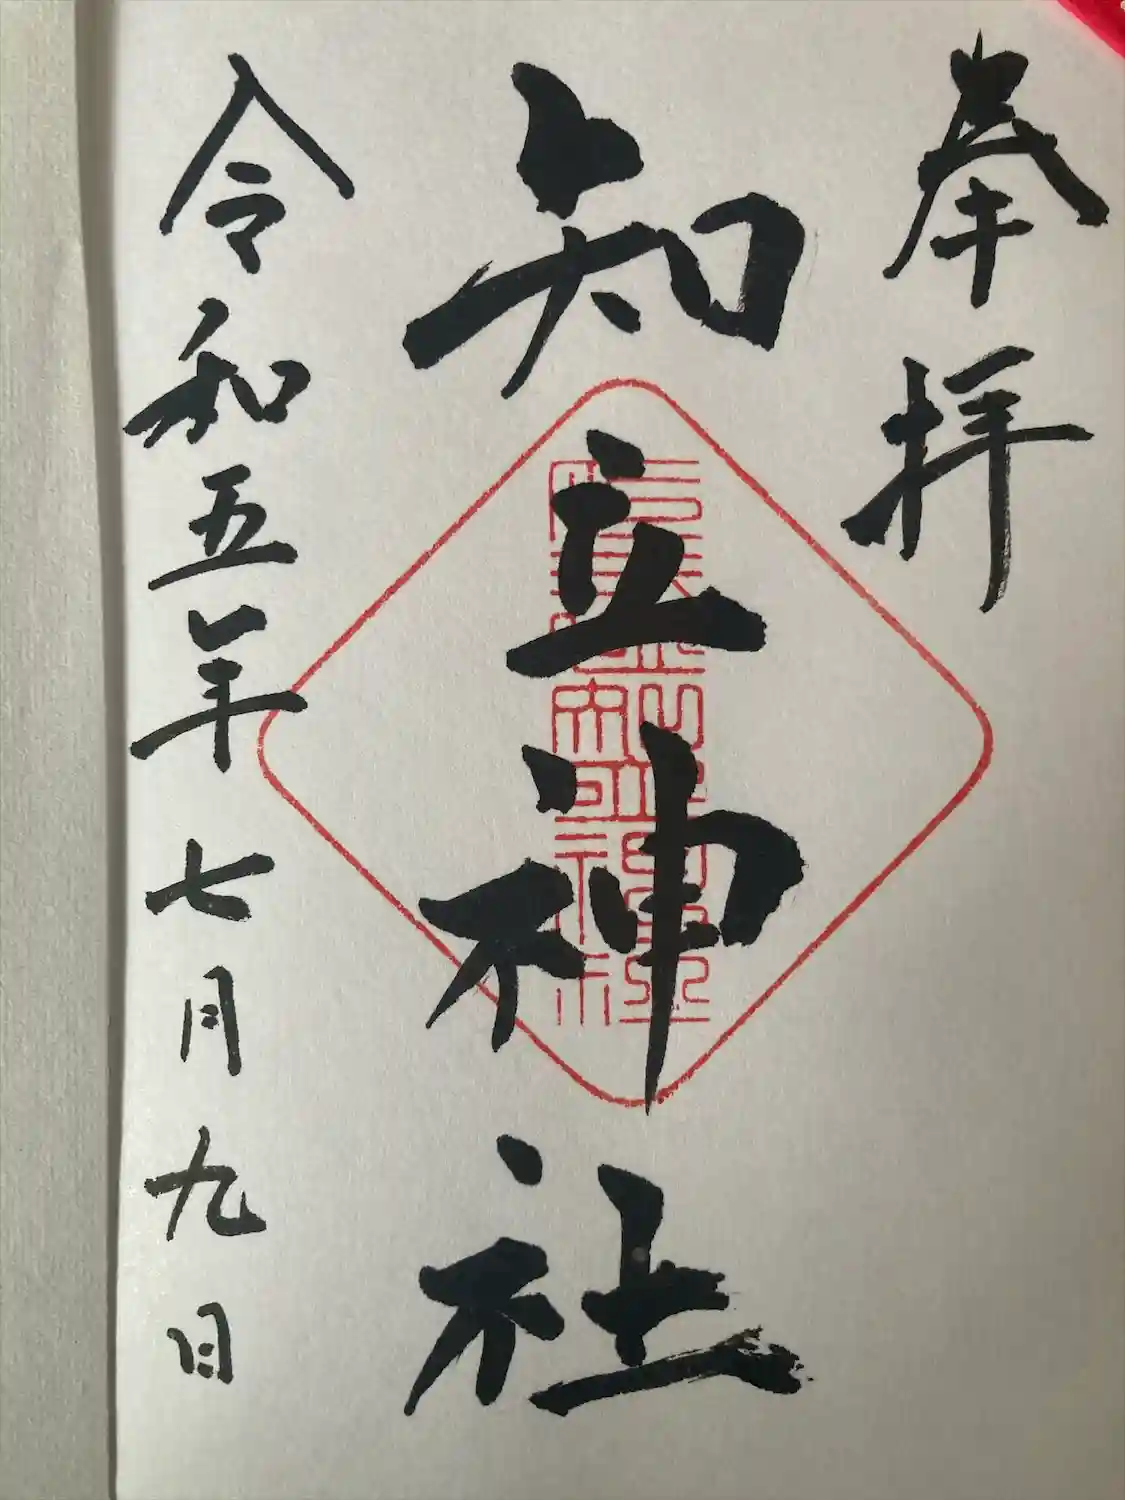 奉拝
知立神社
令和五年七月九日